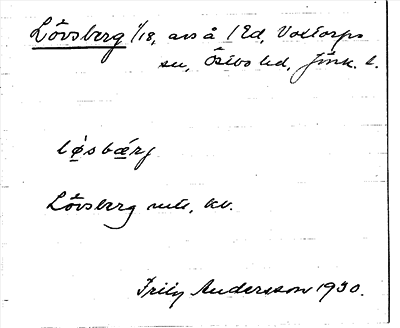 Lövsberg 1/18, avs å 1 Ed, Voxtorps
sn, Östbo hd, Jönk. l.
løsbærg
Lövsberg mtl, kv.
Frily Andersson 1930.